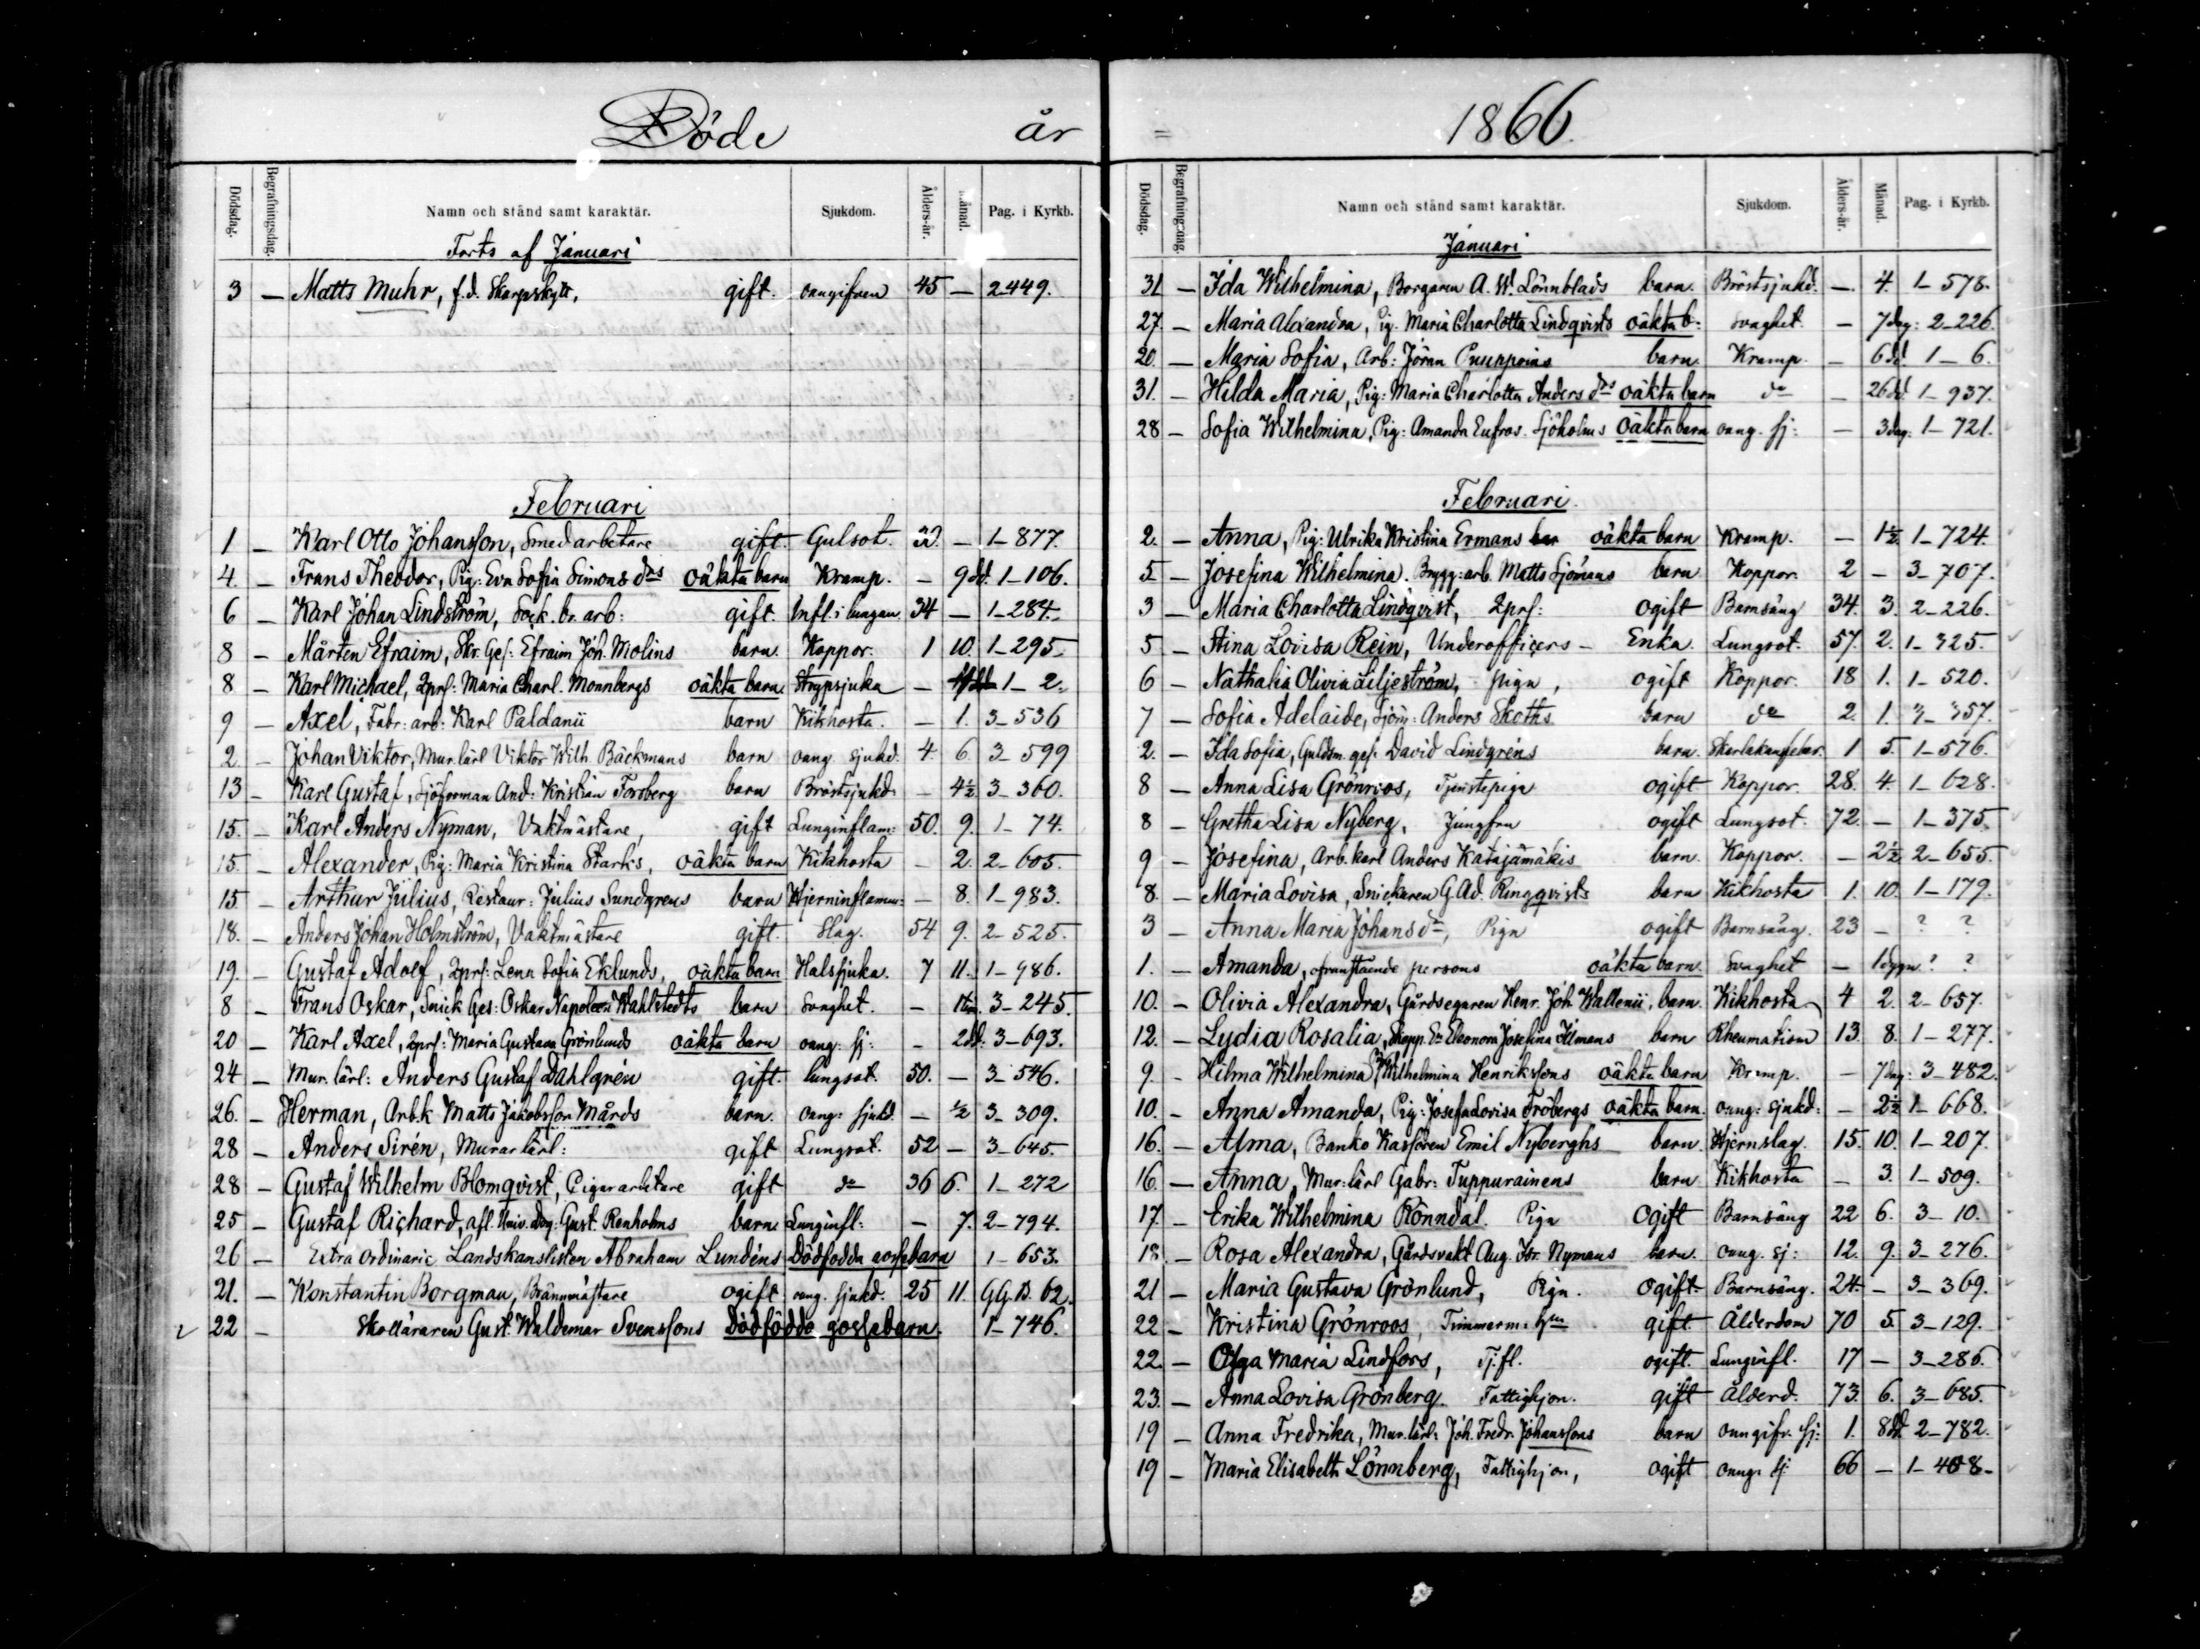 Döde år
Dödsdag. Begrafningsdag. Namn och stånd samt karaktär. Sjukdom. Ålders-år. Månad. Pag. i Kyrkb.
Forts af Januari
3 — Matts Muhr, f.d. Skarpskytt, gift. oangifven 45 — 2-449.
Februari
1 — Karl Otto Johansson, Smedarbetare gift. Gulsot. 32. — 1-877.
4. — Frans Theodor, Pig: Eva Sofia Simons drs oäkta barn Kramp. — 9 dd. 1-106.
6 — Karl Johan Lindström, Sock. br. arb: gift. Infl. i lungan 34 — 1-284.
8 — Mårten Efraim, Skr. Ges: Efraim Joh. Molins barn. Koppor. 1 10. 1-295.
8 — Karl Michael, 2prs: Maria Charl. Monnbergs oäkta barn. Strypsjuka — 1-2.
9 — Axel, Fabr: arb: Karl Paldanii barn Kikhosta. — 1. 3-536
2. — Johan Viktor, Mur. lärl Viktor Wilh. Bäckmans barn oang. sjukd. 4. 6. 3-599
13 — Karl Gustaf, Sjöforman And: Kristian Forsberg barn Bröstsjukd. — 4½ 3-360.
15. — Karl Anders Nyman, Vaktmästare, gift Lunginflam: 50. 9. 1-74.
15. — Alexander, Pig: Maria Kristina Starks, oäkta barn Kikhosta — 2. 2-605.
15 — Arthur Julius, Restaur: Julius Sundgrens barn Hjerninflamm: — 8. 1-983.
18. — Anders Johan Holmström, Vaktmästare gift. Slag. 54 9. 2-525.
19. — Gustaf Adolf, 2prs: Lena Sofia Eklunds, oäkta barn Halssjuka. 7 11. 1-986.
8 — Frans Oskar, Snick Ges: Oskar Napoleon Wahlstedts barn Svaghet. — 1 tim. 3-245.
20 — Karl Axel, 2prs: Maria Gustava Grönlunds oäkta barn oang: sj: — 2dd. 3-693.
24 — Mur. lärl: Anders Gustaf Dahlgrén gift. lungsot. 50. — 3-546.
26. — Herman, Arb.k Matts Jakobsson Mårds barn. oang: sjukd — ½ 3-309.
28 — Anders Sirén, Murarlärl: gift Lungsot. 52 — 3-645.
28 — Gustaf Wilhelm Blomqvist, Cigararbetare gift do 36 6. 1-272
25 — Gustaf Richard, afl. Univ. Dag: Gust. Renholms barn Lunginfl: — 7. 2-794.
26 — Extra ordinarie Landskanslisten Abraham Lundéns Dödfödda gossebarn 1-653.
21. — Konstantin Borgman, Brännmästare ogift oang. sjukd. 25 11. GG.D. 62.
22 — Skolläraren Gust. Waldemar Svenssons Dödfödda gossebarn. 1-746.
1866.
Dödsdag. Begrafningsdag. Namn och stånd samt karaktär. Sjukdom. Ålders-år. Månad. Pag. i Kyrkb.
Januari
31 — Ida Wilhelmina, Borgaren A. W. Lönnblads barn. Bröstsjukd. — 4. 1-578.
27. — Maria Alexandra, Pig. Maria Charlotta Lindqvists oäkta b: Svaghet — 7 dag: 2-226.
20. — Maria Sofia, Arb: Jöran Puupponis barn. Kramp. — 6 dd 1-6.
31. — Hilda Maria, Pig: Maria Charlotta Anders drs oäkta barn do — 26 dd. 1-937.
28 — Sofia Wilhelmina, Pig: Amanda Eufros. Sjöholms oäkta barn oang. sj: — 3 dag. 1-721.
Februari.
2. — Anna, Pig: Ulrika Kristina Ermans bar oäkta barn Kramp. — 1½ 1-724.
5 — Josefina Wilhelmina. Brygg: arb. Matts Sjömans barn Koppor. 2 — 3-707.
3 — Maria Charlotta Lindqvist, 2prs: ogift Barnsäng 34. 3. 2-226.
5 — Stina Lovisa Rein, Underofficers- Enka. Lungsot. 57. 2. 1-325.
6 — Nathalia Olivia Liljeström, piga, ogift Koppor. 18 1. 1-520.
7 — Sofia Adelaide, Sjöm: Anders Skoths barn do 2. 1. 3-357.
2. — Ida Sofia, Guldsm. ges. David Lindgréns barn. Skarlakansfeber. 1 5. 1-576.
8 — Anna Lisa Grönroos, Tjenstepiga ogift Koppor. 28. 4. 1-628.
8 — Gretha Lisa Nyberg, Jungfru ogift Lungsot. 72. — 1-375.
9 — Josefina, Arb. karl Anders Katajamäkis barn. Koppor. — 2½ 2-655.
8. — Maria Lovisa, Snickaren G. Ad. Ringqvists barn Kikhosta 1. 10. 1-179.
3 — Anna Maria Johans dr, Piga ogift Barnsäng. 23 — ? ?
1. — Amanda, ofvanstående persons oäkta barn. Svaghet — 1 dygn ? ?
10. — Olivia Alexandra, Gårdsegaren Henr. Joh. Wallenii, barn. Kikhosta 4 2. 2-657.
12. — Lydia Rosalia, Skepp. E: Eleonora Josefina Ilmans barn Rheumatism 13. 8. 1-277.
9. — Hilma Wilhelmina, Wilhelmina Henrikssons oäkta barn Kramp. — 7 dag: 3-482.
10. — Anna Amanda, Pig: Josefa Lovisa Fröbergs oäkta barn. oang: sjukd: — 2½ 1-668.
16. — Alma, Banko Kassören Emil Nyberghs barn. Hjernslag. 15. 10. 1-207.
16. — Anna, Mur: lärl Gabr: Tuppurainens barn Kikhosta — 3. 1-509.
17. — Erika Wilhelmina Rönndal. Piga Ogift Barnsäng 22 6. 3-10.
18. — Rosa Alexandra, Gårdsvakt Aug. Isr. Nymans barn. oang. sj: 12. 9. 3-276.
21 — Maria Gustava Grönlund, Piga. Ogift Barnsäng. 24. — 3-369.
22 — Kristina Grönroos, Timmerm: gift Ålderdom 70 5. 3-129.
22. — Olga Maria Lindfors, Tj.fl. ogift. Lunginfl. 17 — 3-286.
23. — Anna Lovisa Grönberg. Fattighjon. gift Ålderd. 73. 6. 3-685.
19 — Anna Fredrika, Mur. lärl: Joh. Fredr. Johanssons barn oangifv. sj: 1. 8 dd. 2-782.
19 — Maria Elisabeth Lönnberg, Fattighjon, ogift oang. sj 66 — 1-408-